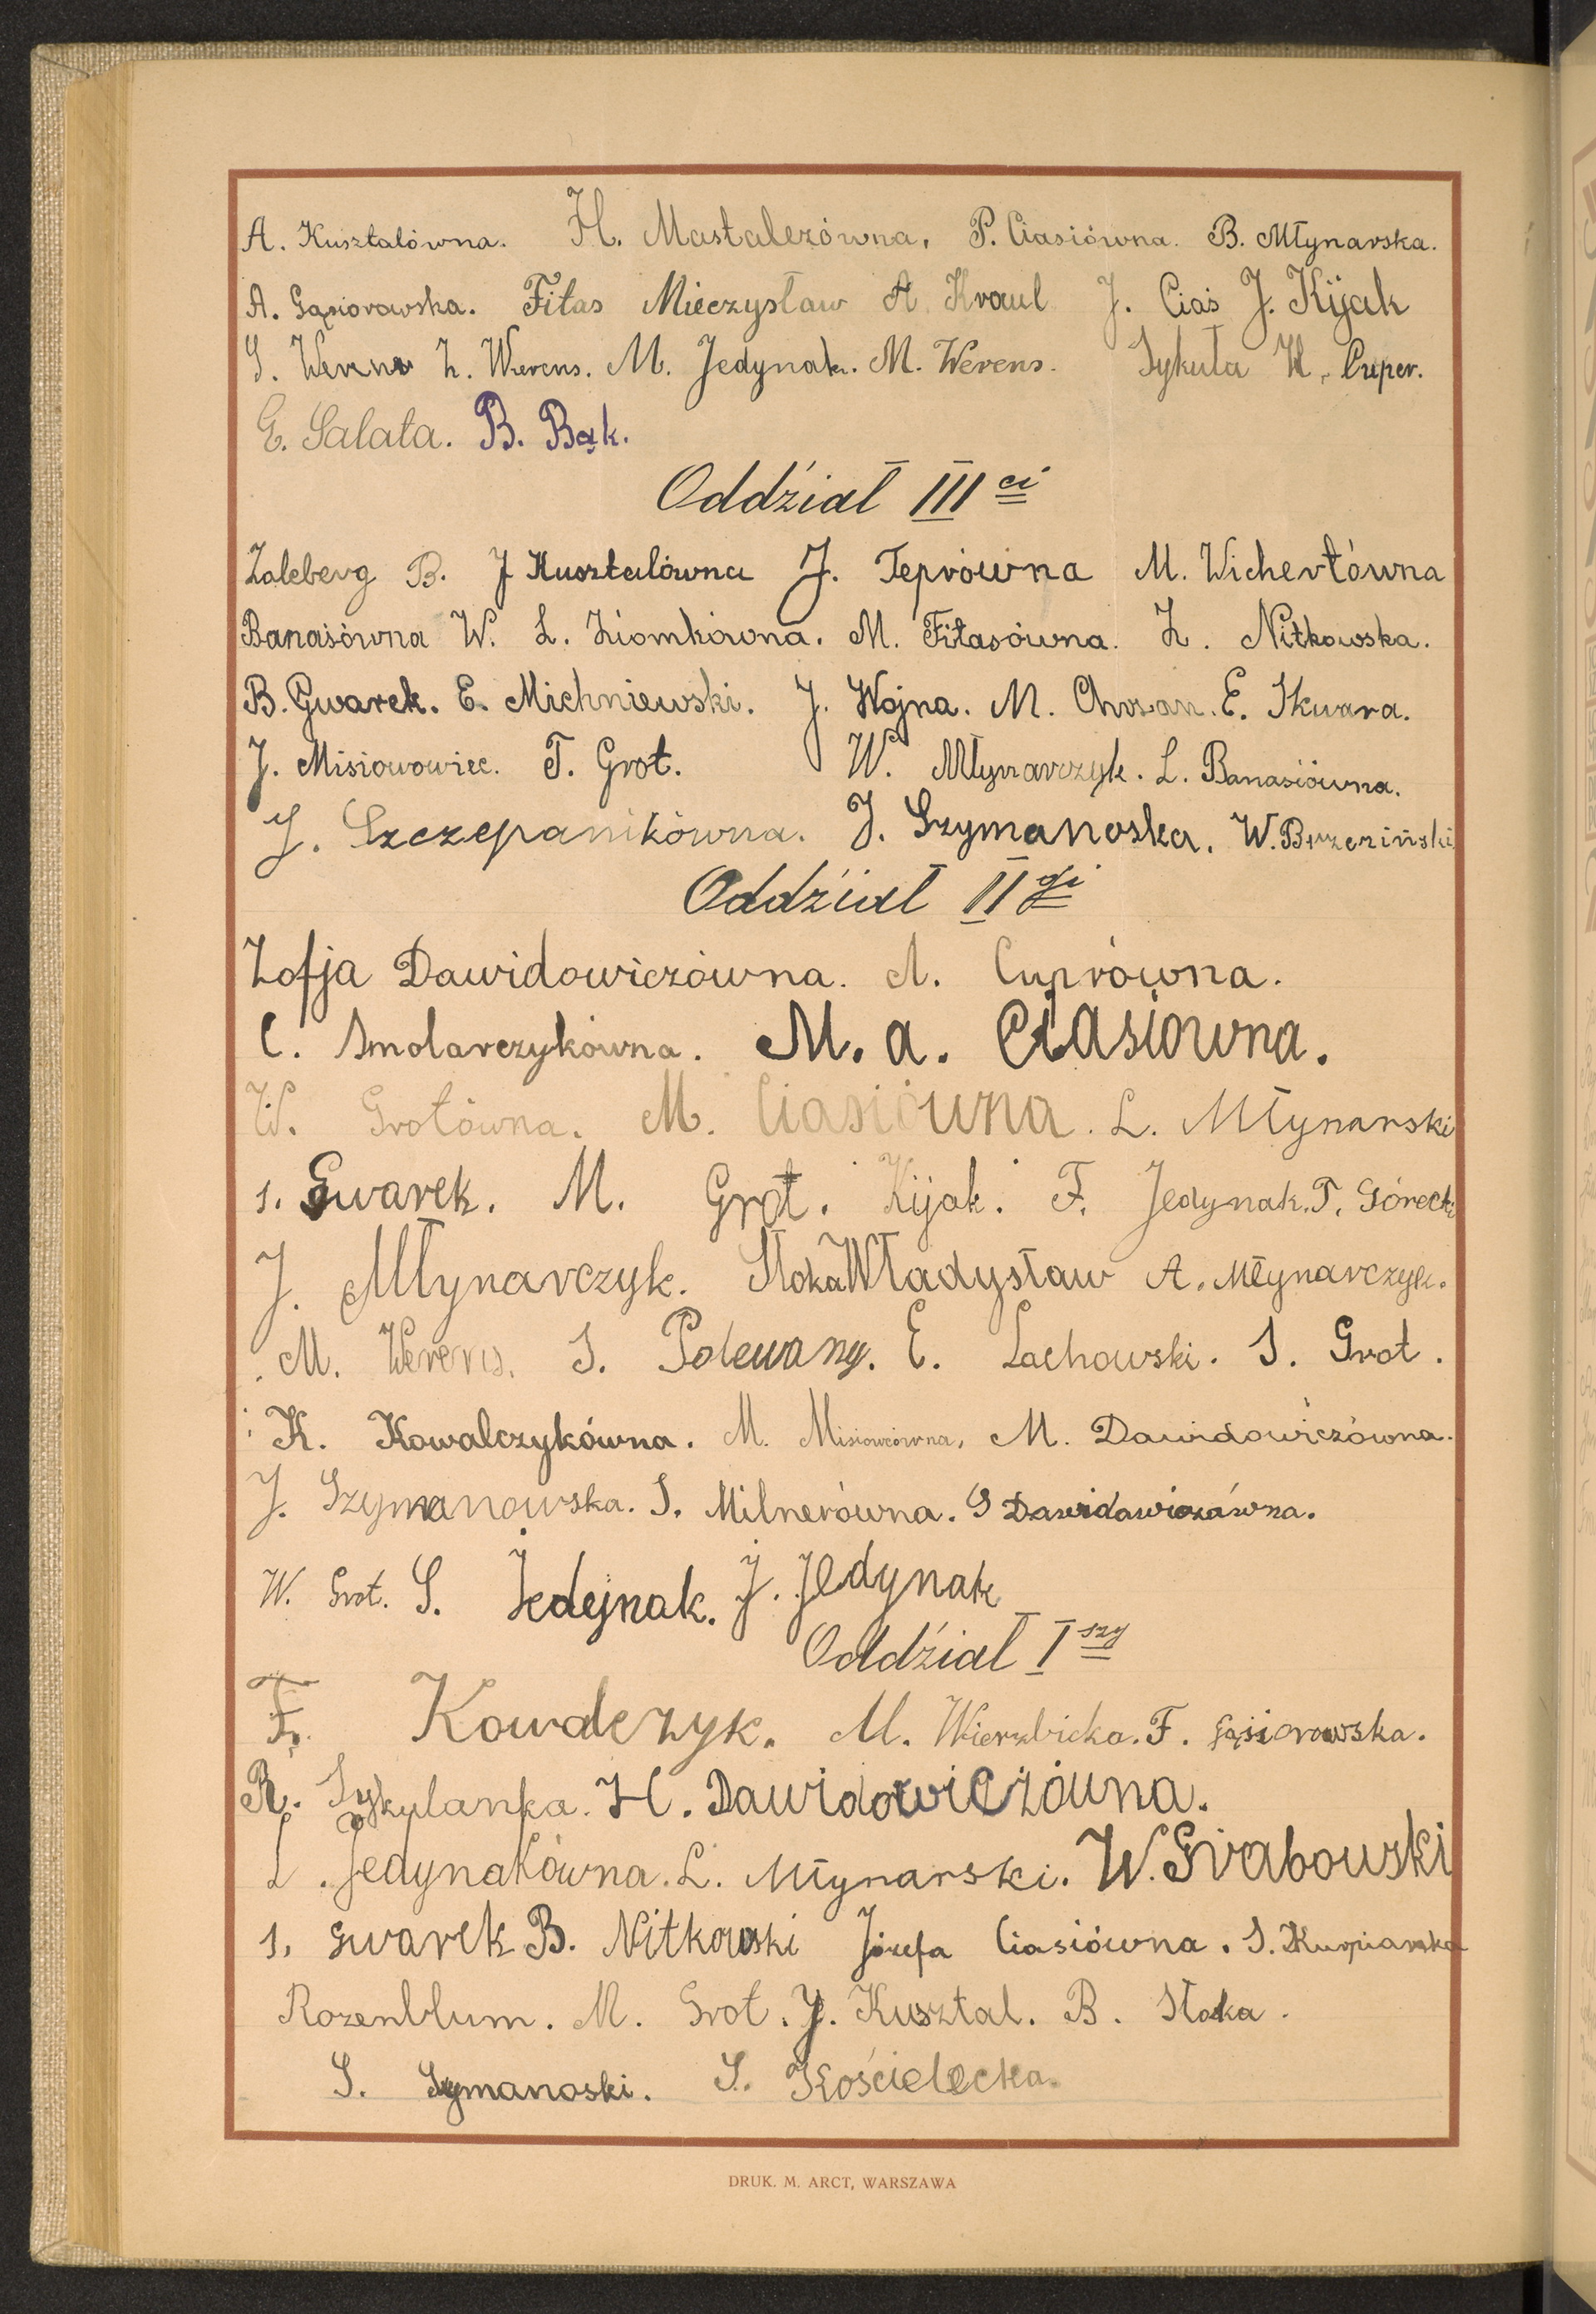 A. Kusztalówna. H. Mastalerzówna. P. Ciasiówna. B. Młynarska.
A. Gąsiorowska. Fitas Mieczysław A. Kraul J. Ciaś J. Kijak
S. Z. Werens. M. Jedynak. M. Werens. Sykuła H. Cuper.
E. Salata. B. Bąk.
Oddział III ci
Zaleberg B. J Kusztalówna J. Teprówna M. Wichertówna
Banasówna W. L. Ziomkówna. M. Fitasówna. Z. Nitkowska.
B. Gwarek. E. Michniewski. J. Wojna. M. Chrzan. E. Skwara.
J. Misiowowiec. T. Grot. W. Młynarczyk. L. Banasiówna.
J. Szczepanikówna. J. Szymanoska. W. Brzeziński
Oddział II gi
Zofja Dawidowiczówna. A. Cuprówna.
C. Smolarczykówna. M. a. Ciasiowna.
W. Grotówna. M. Ciasiówna. L. Młynarski
S. Gwarek. M. Grot. Kijak. F. Jedynak. T. Górecki
J. Młynarczyk. Słoka Władysław A. Młynarczyk.
M. Werens. S. Polewany. E. Lachowski. S. Grot.
K. Kowalczykówna. M. Misiowcówna, M. Dawidowiczówna.
J. Szymanowska. S. Milnerówna. S Dawidowiczówna.
W. Grot. S. Jedejnak. J. Jedynak
Oddział I szy
F. Kowalczyk. M. Wierzbicka. F. Gąsiorowska.
R. Sykulanka. H. Dawidowiczówna.
L. Jedynakówna. L. Młynarski. W. Grabowski
S. Gwarek B. Nitkowski Józefa Ciasiówna. S. Kurpiarska
Rozenblum. M. Grot. J. Kusztal. B. Słoka.
S. Szymanoski. S. Kościelecka.
DRUK. M. ARCT, WARSZAWA